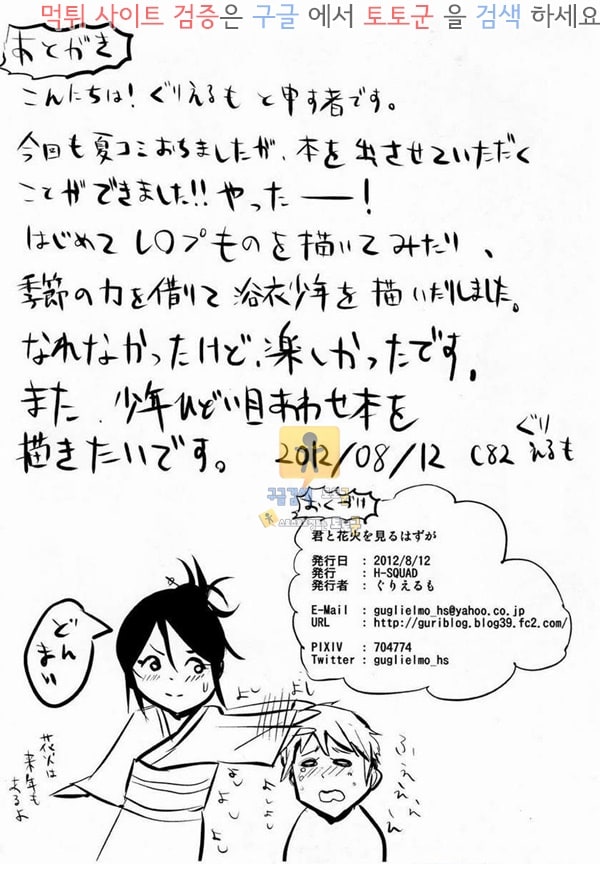 먹튀 사이트 검증은 구글 에서 토토군 을 검색 하세요
あとがき
こんにちは!ぐりえるもと申す者です。
今回も夏コミおちましたが、本を出させていただく
ことができました!!やったー!
はじめてレ○プものを描いてみたり、
季節の力を借りて浴衣少年を描いたりしました。
なれなかったけど、楽しかったです。
また、少年ひどい目あわせ本を
描きたいです。 2012/08/12 C82 ぐりえるも
おくづけ
君と花火を見るはずが
発行日 : 2012/8/12
発行 : H-SQUAD
発行者 : ぐりえるも
E-Mail : guglielmo_hs@yahoo.co.jp
URL : http://guriblog.blog39.fc2.com/
PIXIV : 704774
Twitter : guglielmo_hs
どんまい
よし
よし
よし
よし
よし
よし
花火は
来年も
あるよ
ふえぇぇん